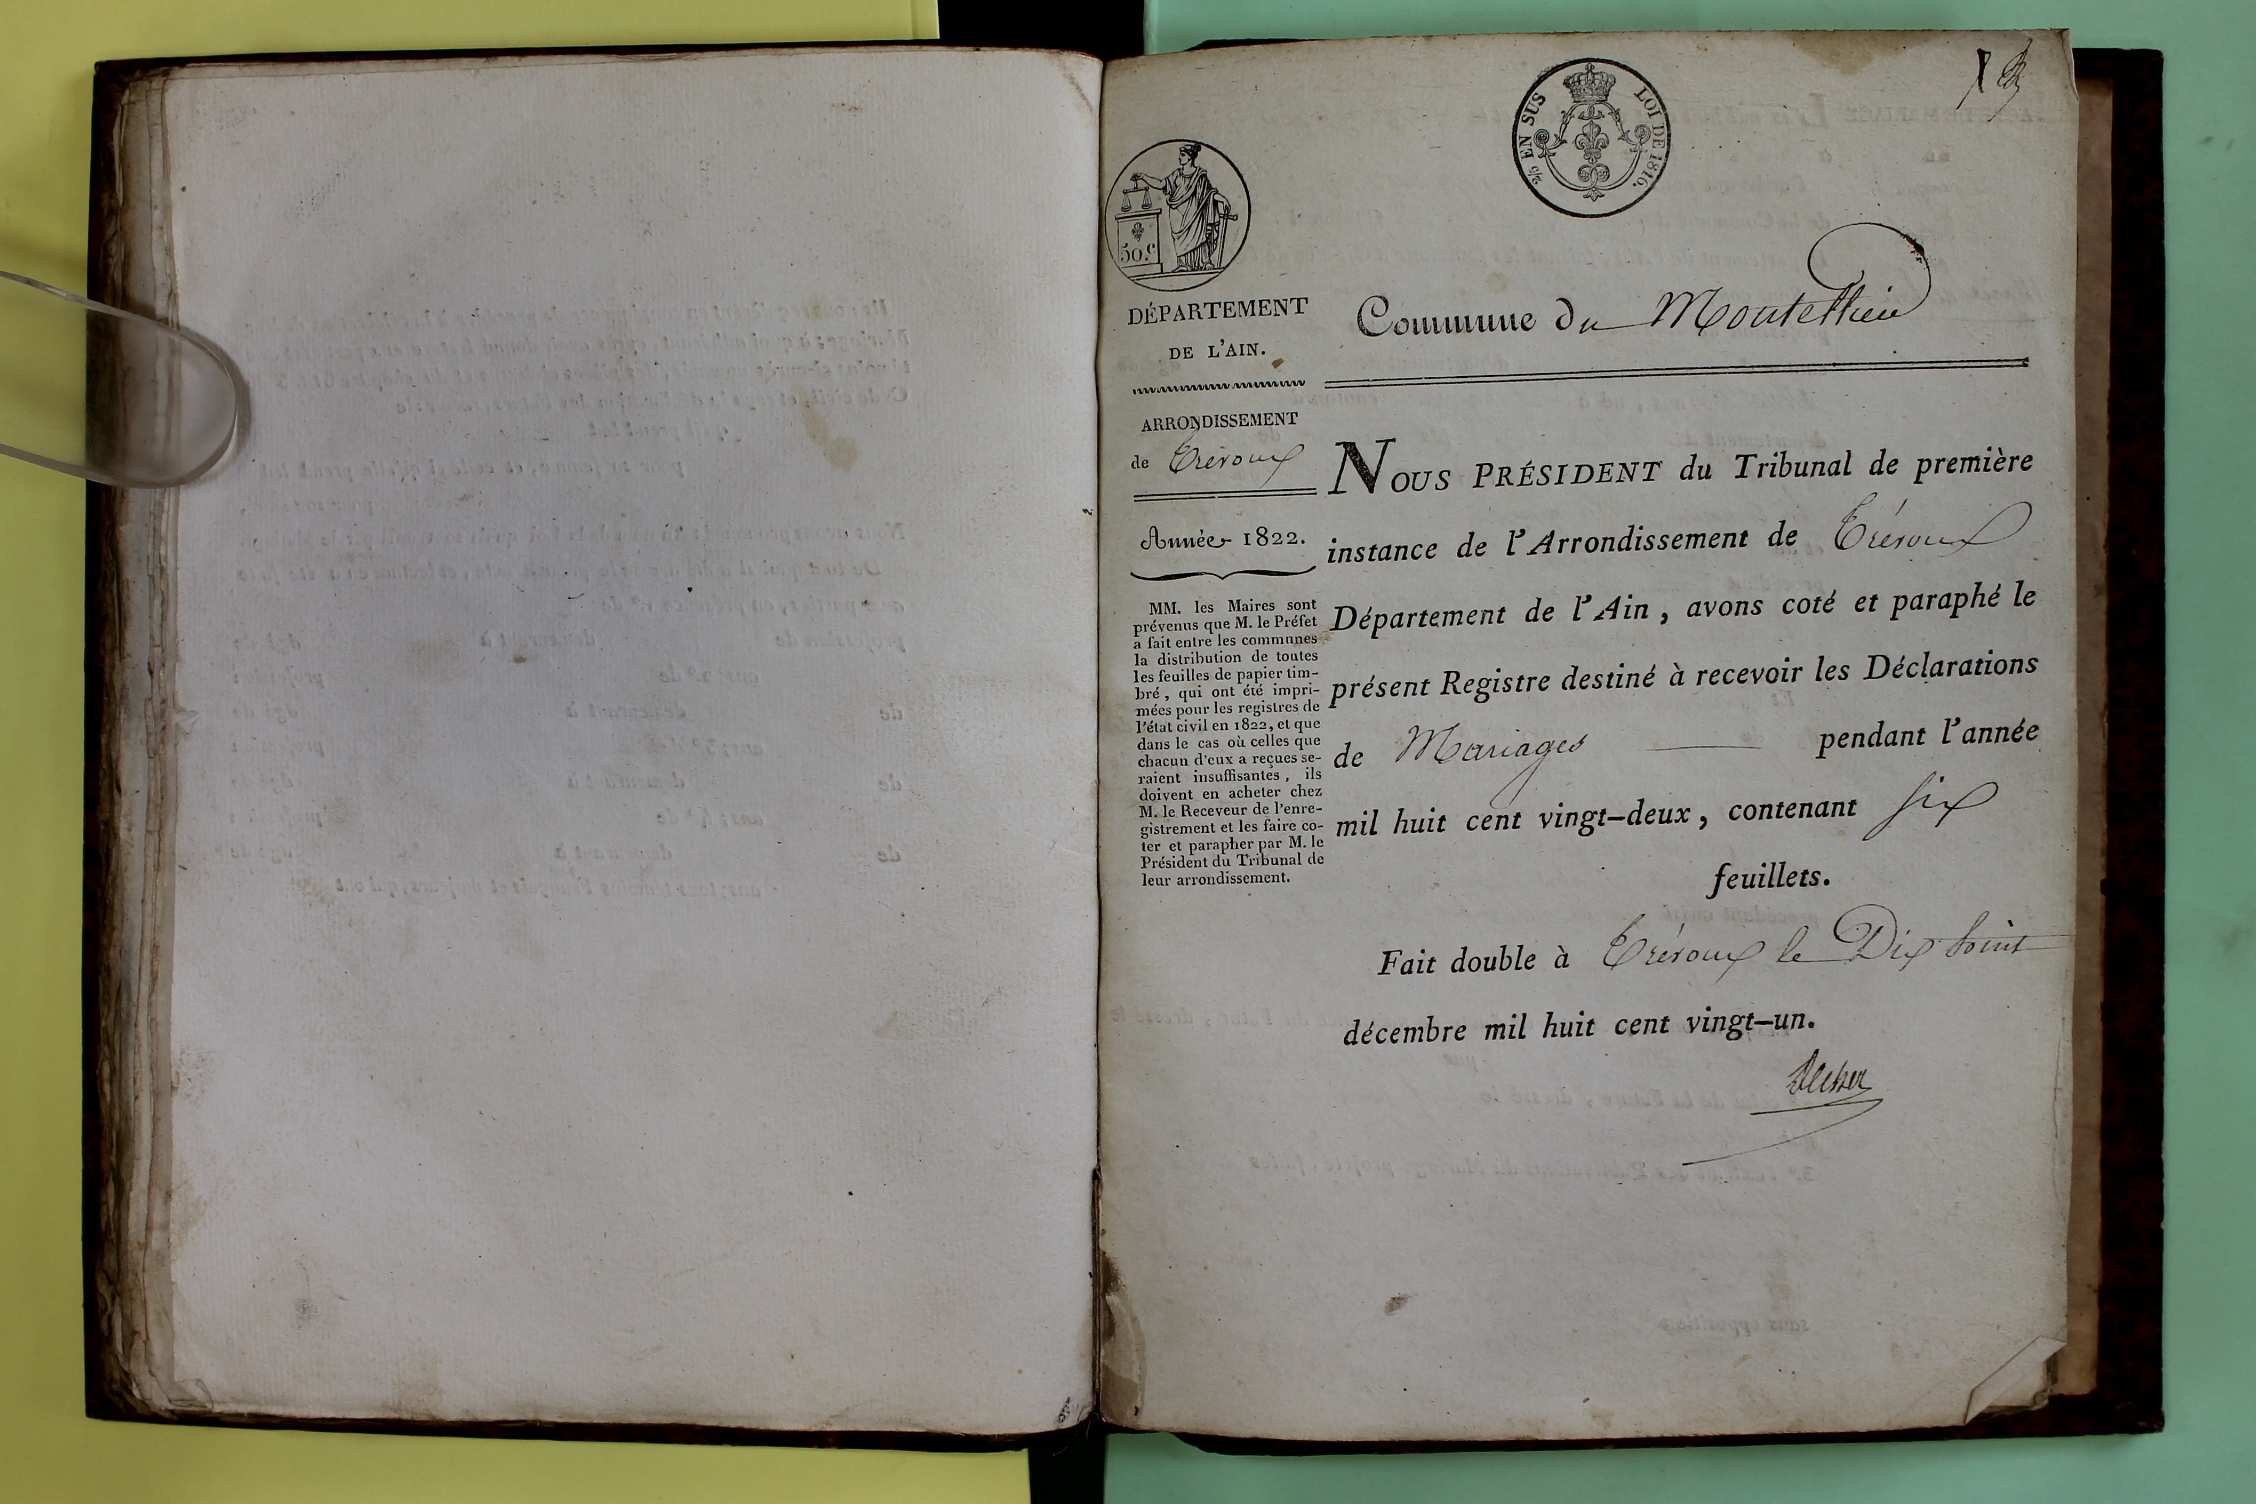 2/10 EN SUS LOI DE 1816.
50.C
DÉPARTEMENT
DE L'AIN.
ARRONDISSEMENT
de Trévoux
Année 1822.
MM. les Maires sont
prévenus que M. le Préfet
a fait entre les communes
la distribution de toutes
les feuilles de papier tim-
bré, qui ont été impri-
mées pour les registres de
l'état civil en 1822, et que
dans le cas où celles que
chacun d'eux a reçues se-
raient insuffisantes, ils
doivent en acheter chez
M. le Receveur de l'enre-
gistrement et les faire co-
ter et parapher par M. le
Président du Tribunal de
leur arrondissement.
Commune du Montellier
NOUS PRÉSIDENT du Tribunal de première
instance de l'Arrondissement de Trévoux
Département de l'Ain, avons coté et paraphé le
présent Registre destiné à recevoir les Déclarations
de Mariages pendant l'année
mil huit cent vingt-deux, contenant six
feuillets.
Fait double à Trévoux le Dix huit
décembre mil huit cent vingt-un.